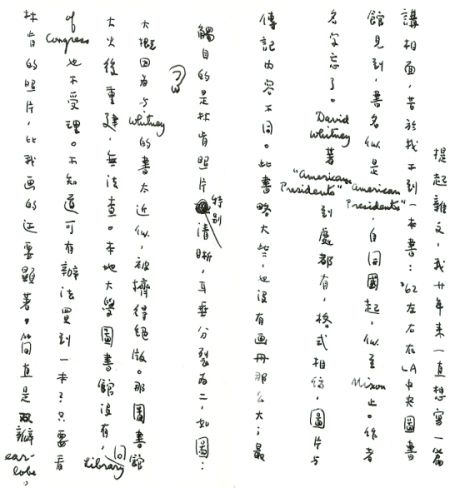 提起雜文，我廿年來一直想寫一篇
講相面，苦於找不到一本書：'62左右在LA中央圖書
館見到，書名似是"American Presidents"，自開國起，似至Nixon止。作者
名字忘了。David Whitney著"American Presidents"到處都有，格式相仿，圖片與
傳記內容不同。此書略大些，也沒有畫冊那麼大；最
觸目的是林肯照片特別清晰，耳垂分裂為二，如圖：
大概因為与Whitney的書太近似，被擠得絕版。那圖書館
大火後重建，無法查。本地大學圖書館沒有，問Library
of Congress也不受理。不知道可有辦法買到一本？只要看
林肯的照片，比我画的还要顯著。简直是双瓣ear-lobe。